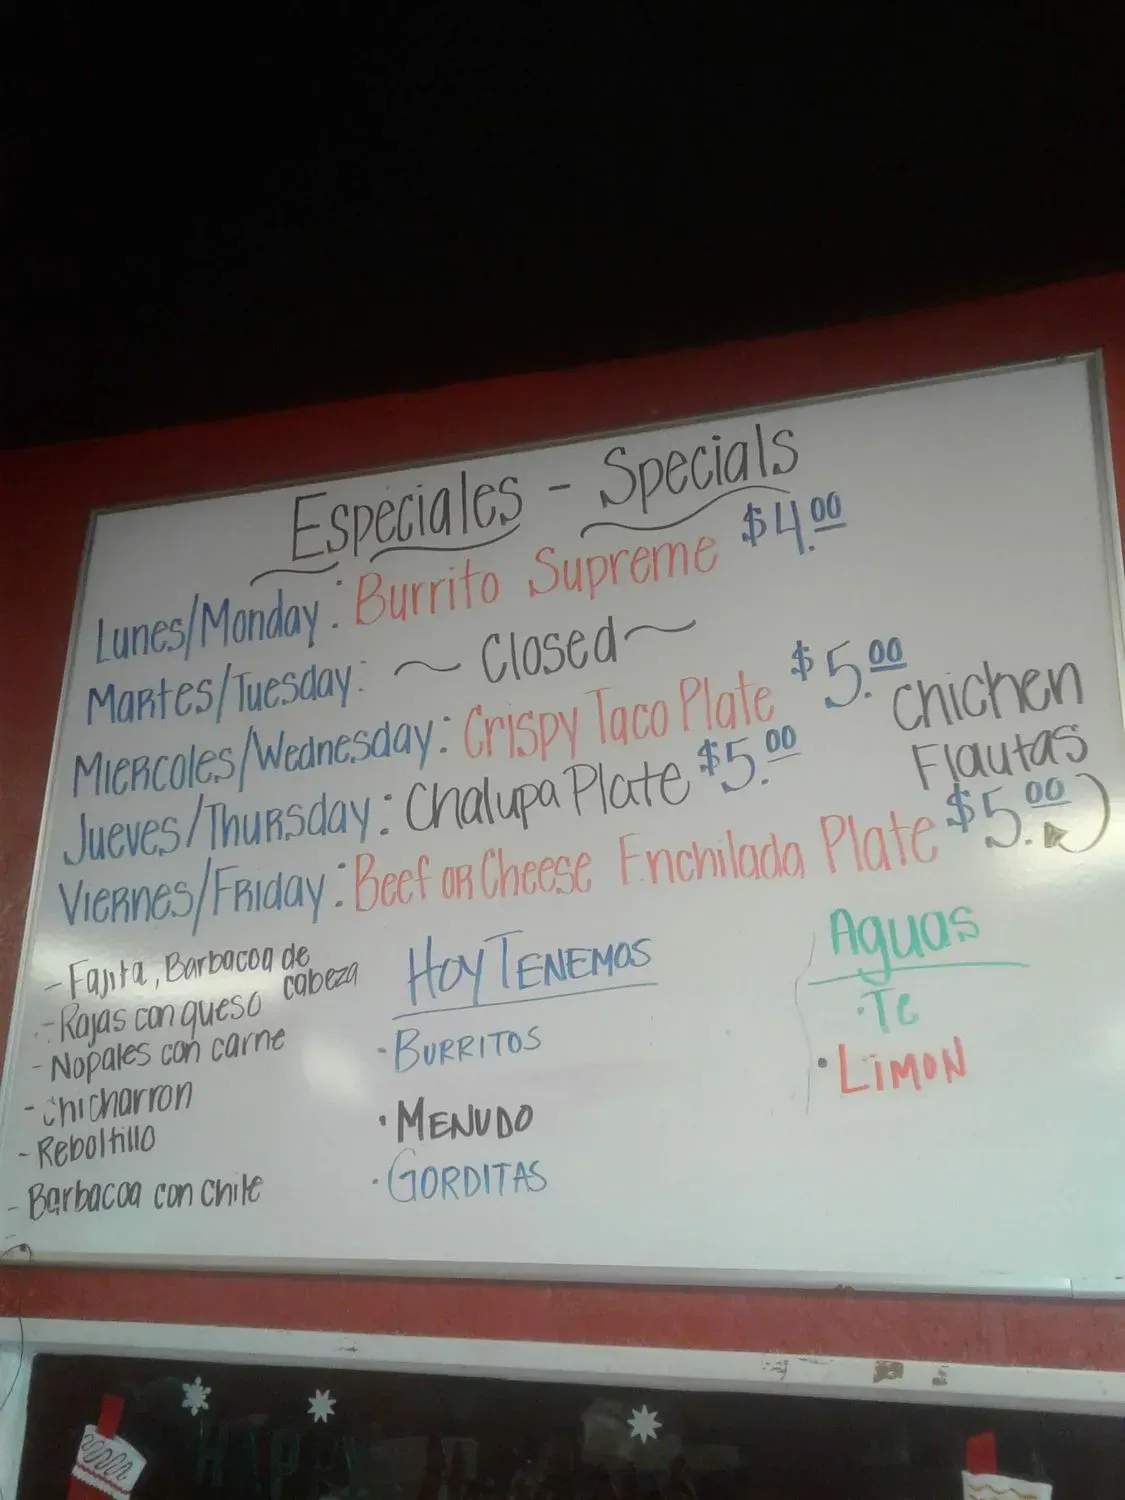 Especiales - Specials
Lunes/Monday: Burrito Supreme $4.00
Martes/Tuesday: ~ Closed ~
Miercoles/Wednesday: Crispy Taco Plate $5.00
Jueves/Thursday: Chalupa Plate $5.00
Chicken
Flautas
Viernes/Friday: Beef or Cheese Enchilada Plate $5.00
- Fajita, Barbacoa de
cabeza
- Rajas con queso
- Nopales con carne
- Chicharron
- Reboltillo
- Barbacoa con chile
Hoy Tenemos
· Burritos
· Menudo
· Gorditas
Aguas
· Te
· Limon